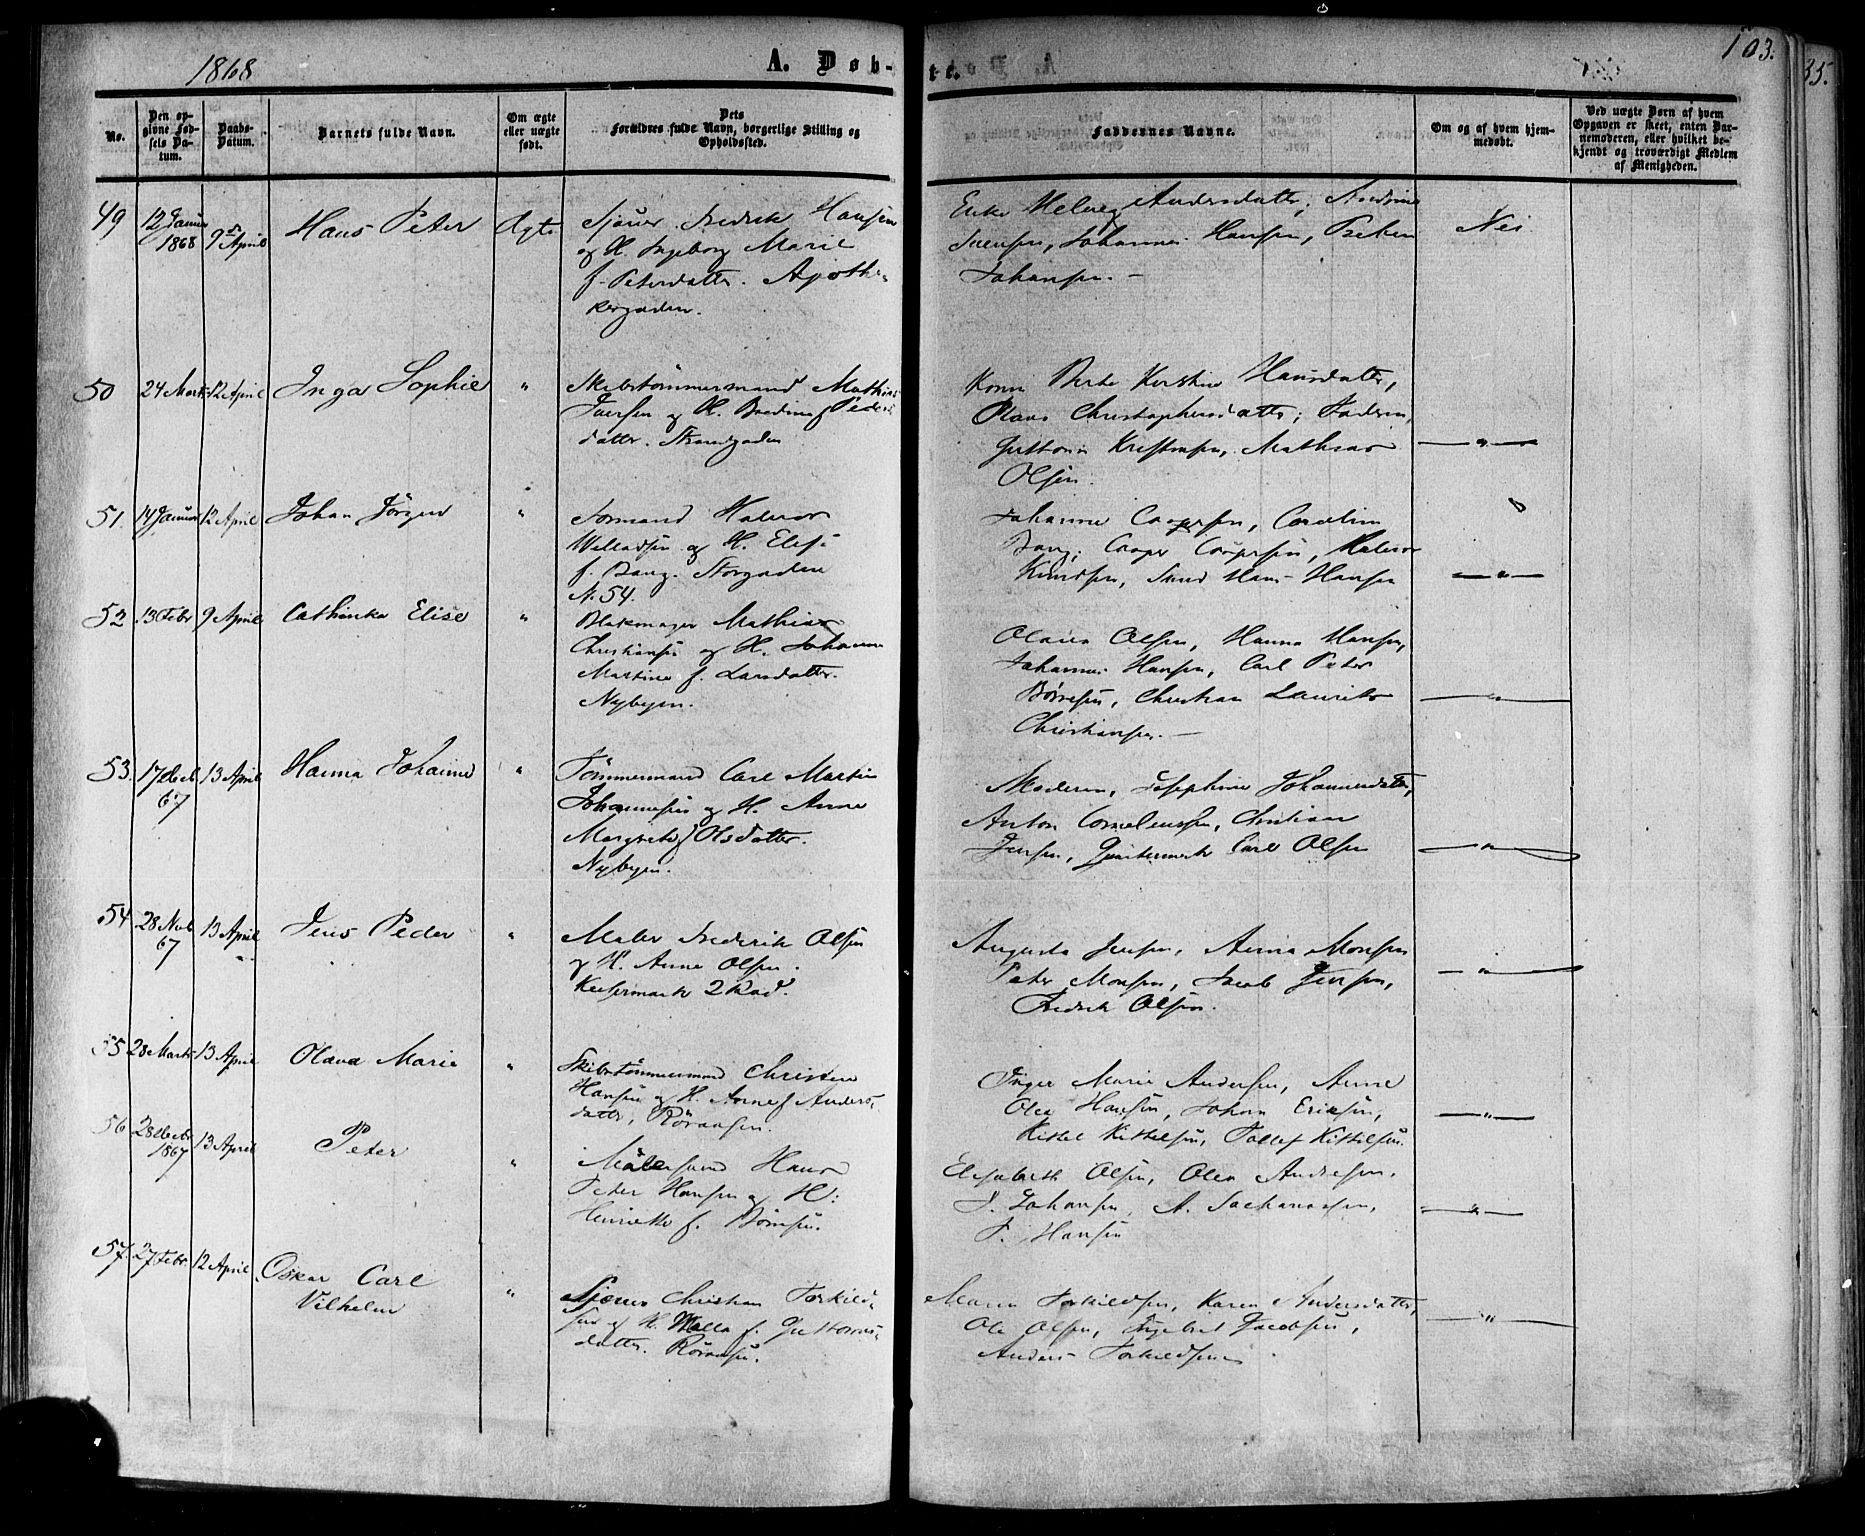 1868
A. Døb-
No.
Den op-
givne Fød-
sels Da-
tum.
Daabs-
Datum.
Barnets fulde Navn.
Om ægte
eller uægte
født.
Dets
Forældres fulde Navn, borgerlige Stilling og
Opholdssted.
49
12 Januar
1868
9de April
Hans Peter
Ægte
Sjømd Fredrik Hansen
og H. Ingeborg Marie
f. Petersdatter. Apothe-
kergaden.
50
24 Marts
12 April
Inga Sophie
"
Skibstømmermand Mathias
Iversen og H. f. Peders
datter. Strandgaden
51
14 Januar
12 April
Johan Jörgen
"
Formand Halvor
Willadsen og H. Elise
f. Bang. Storgaden
N. 54.
52
13 Febr
9 April
Cathinka Elise
"
Blokmager Mathias
Christiansen og H. Johanne
Martine f. Larsdatter.
Nybyen.
53.
17 Decb
67
13 April
Hanna Johanne
"
Tömmermand Carl Martin
Johannesen og H. Anne
Margrethe f. Olsdatter.
Nybyen.
54
28 Novb
67
13 April
Jens Peder
"
Maler Frederik Olsen
og H. Anne Olsen.
2 Rad.
55
28 Marts
13 April
Olava Marie
"
Skibstømmermand Christen
Hansen og H. Anne f. Anders-
datter, Röraasen.
56
28 Decbr
1867
13 April
Peter
"
Hans
Peter Hansen og H:
Henriette f.
57.
27 Febr.
12 April
Oskar Carl
Vilhelm
"
Sjømd Christian Torkild-
sen og H. Malla f. Guttorms-
datter. Röraasen.
te.
103.
35.
Faddernes Navne.
Om og af hvem hjem-
medøbt.
Ved uægte Børn af hvem
Opgaven er skeet, enten Bar-
nemoderen, eller hvilket be-
kjendt og troværdigt Medlem
af Menigheden.
Enke Helvig Andersdatter,
Svensen, Johannes Hansen,
Johansen. -
Nei
Kone Berte Kirstine Hansdatter,
Olava Christophersdatter; Faderen,
Guttorm Kristensen, Mathias
Olsen.
"
Johanne Coopersen, Caroline
Bang, Casper Coopersen, Halvor
Knudsen, Hans Hansen
"
Olava Olsen, Hanna Hansen,
Johannes Hansen, Carl Peter
Börresen, Christian Laurits
Christiansen. -
"
Moderen, Josephine Johannesdatter,
Anton Corneliussen, Christian
Jensen, Carl Olsen
"
Augusta Jensen, Anna Monsen
Peter Monsen, Jacob Jensen,
Fredrik Olsen.
"
Inger Marie Andersen, Anne
Olea Hansen, Johan Eriksen,
Kittel Kittelsen, Tollef Kittelsen.
"
Elisabeth Olsen, Olea Andresen,
J. Johansen, A. Sachariassen,
P. Hansen
"
Maren Torkildsen, Karen Andersdatter,
Ole Olsen, Ingebret Jacobsen,
Anders Torkildsen
"